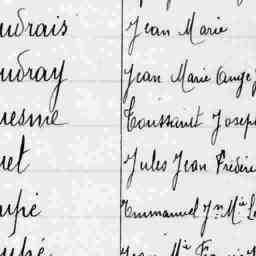 udrais Jean Marie
udray Jean Marie Ange J
uesme Toussaint Joseph
uet Jules Jean Frédéric
upé Emmanuel Jn Mie Le
upé Jean Mie Franç